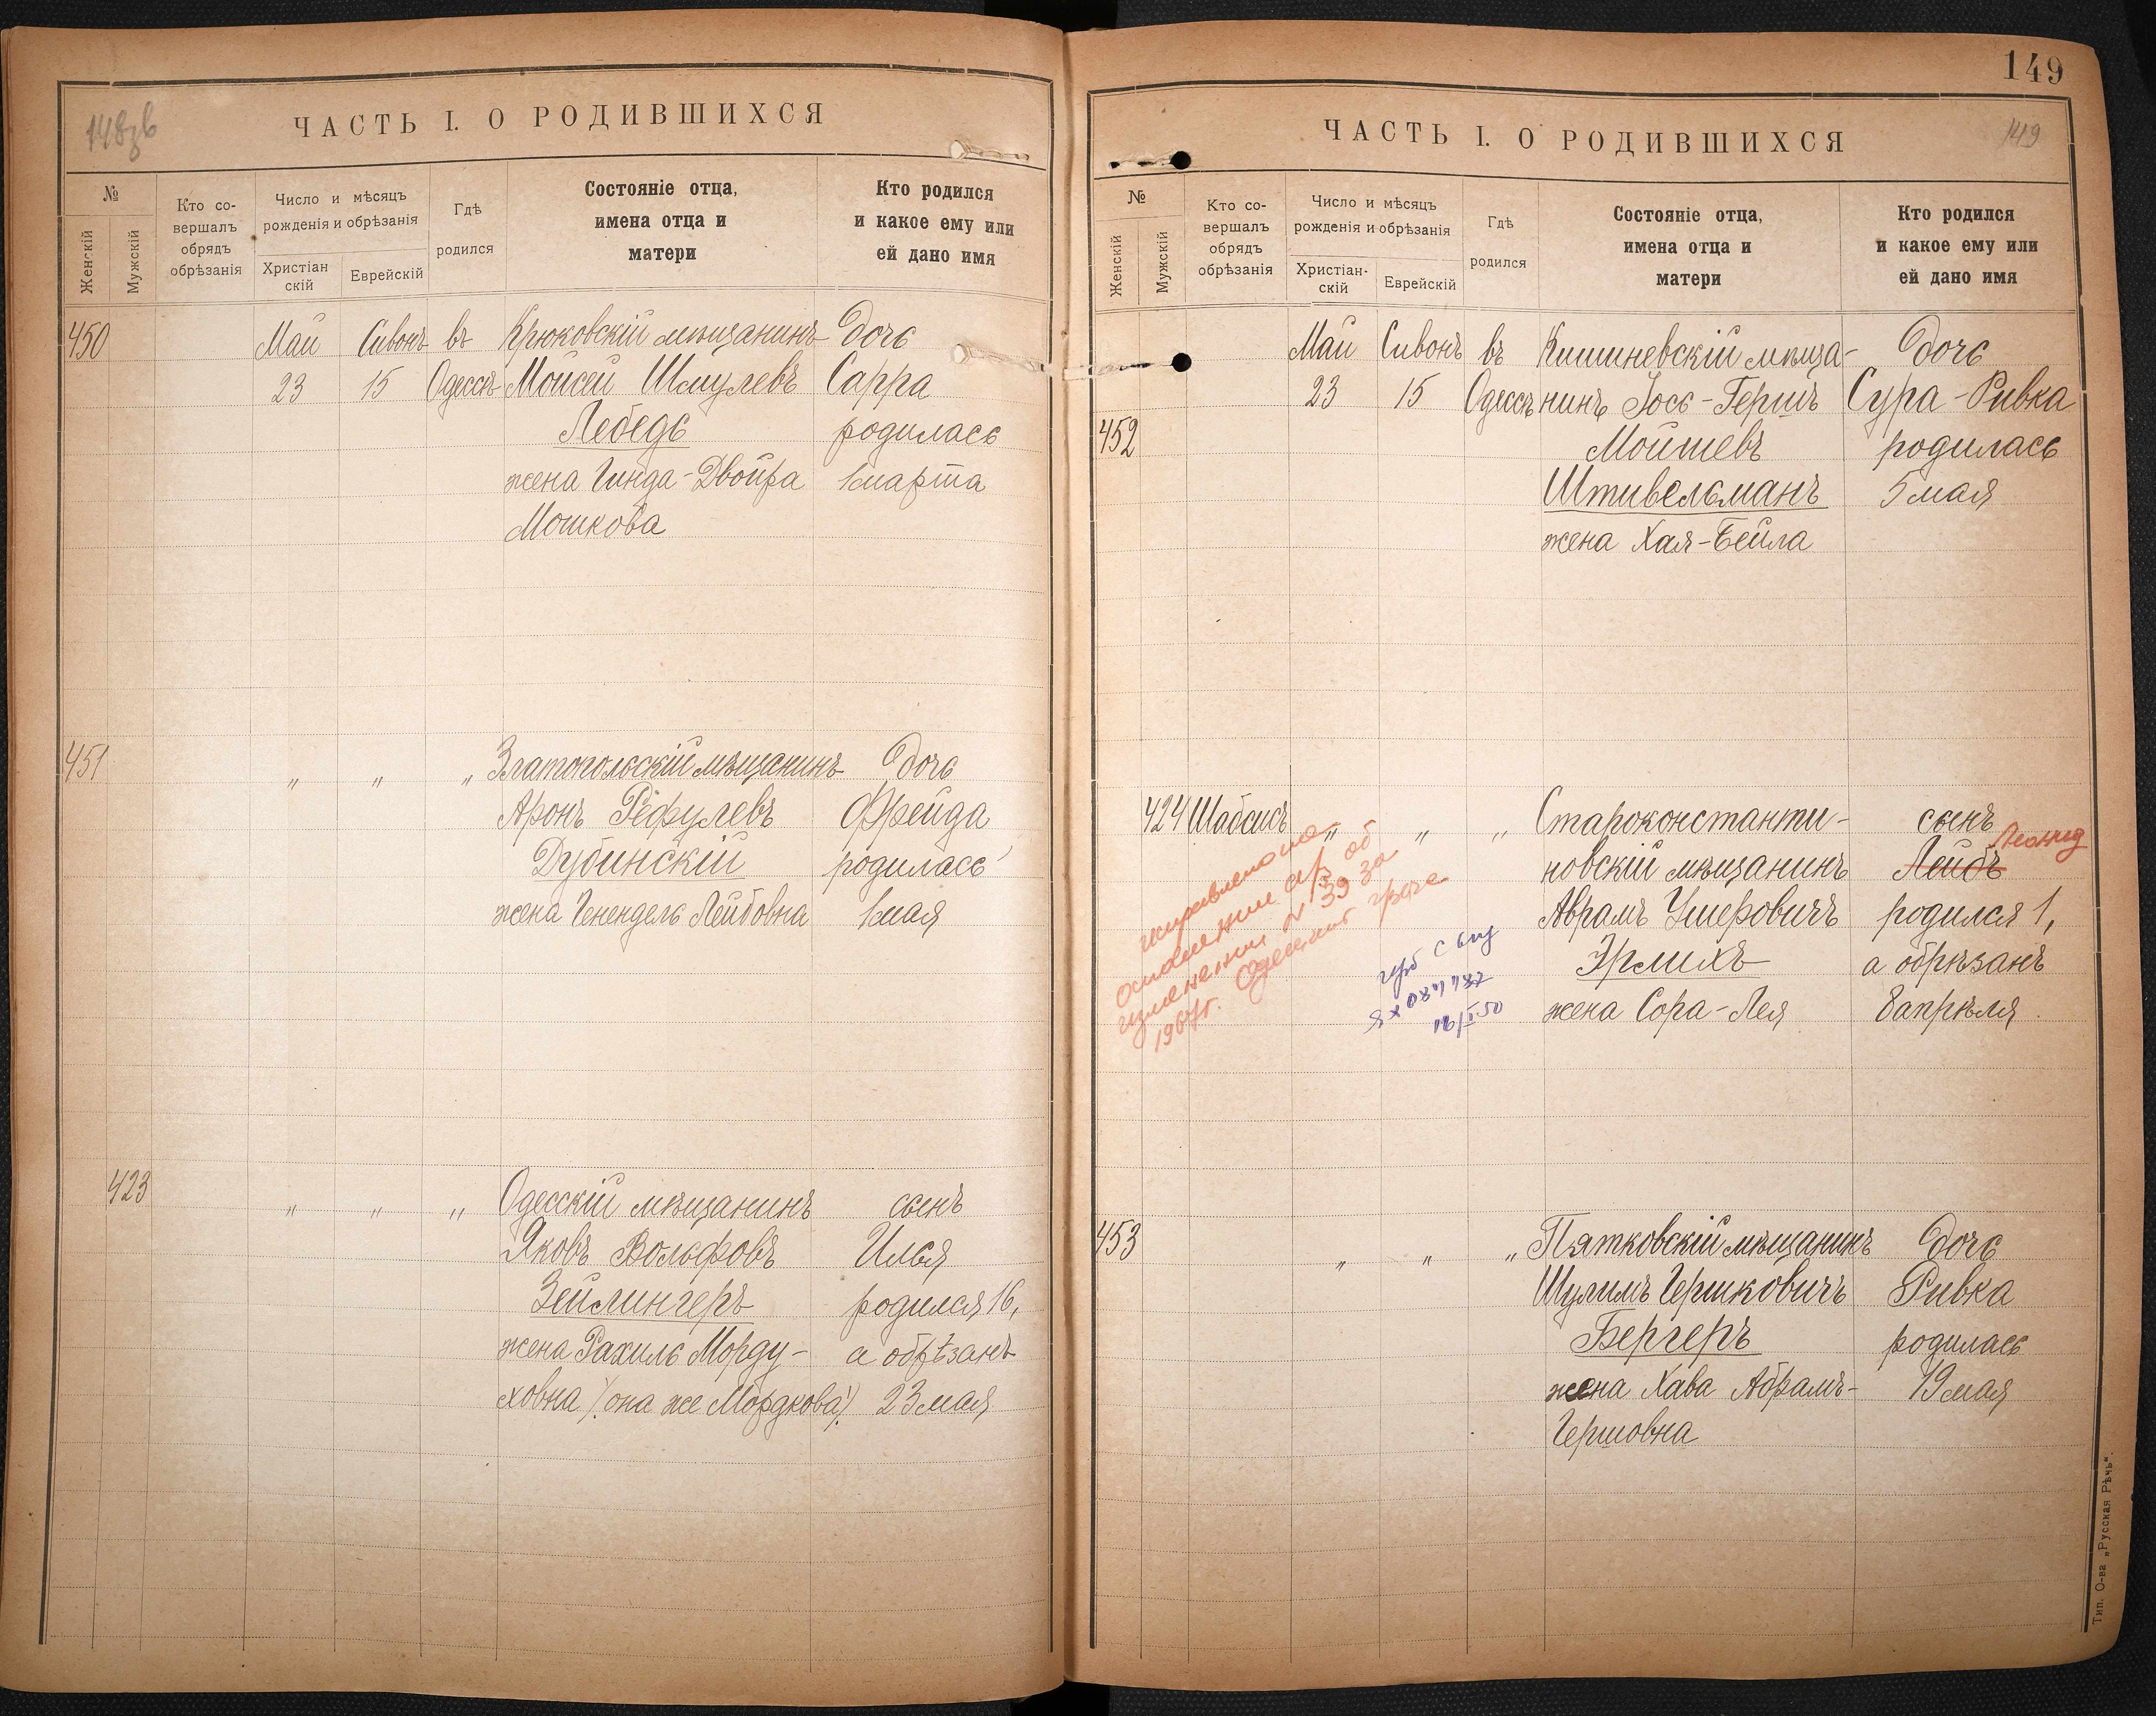 148зв
ЧАСТЬ I. О РОДИВШИХСЯ
№
Женскій
Мужскій
Кто со-
вершалъ
обрядъ
обрѣзанія
Число и мѣсяцъ
рожденія и обрѣзанія
Христіан
скій
Еврейскій
Гдѣ
родился
Состояніе отца,
имена отца и
матери
Кто родился
и какое ему или
ей дано имя
450 Май Сивонъ въ Крюковскій мѣщанинъ Дочь
23 15 Одессѣ Мойсей Шмулевъ Сарра
Лебедь родилась
жена Гинда-Двойра 1 марта
Мошкова
451 " " " Златопольскій мѣщанинъ Дочь
Аронъ Рефулевъ Фрейда
Дубинскій родилась
жена Генендель Лейбовна 1 мая
423 " " " Одесскій мѣщанинъ сынъ
Яковъ Вольфовъ Илья
Зейлингеръ родился 16,
жена Рахиль Морду- а обрѣзанъ
ховна /: она же Мордкова :/ 23 мая
149
ЧАСТЬ I. О РОДИВШИХСЯ
149
№
Женскій
Мужскій
Кто со-
вершалъ
обрядъ
обрѣзанія
Число и мѣсяцъ
рожденія и обрѣзанія
Христіан-
скій
Еврейскій
Гдѣ
родился
Состояніе отца,
имена отца и
матери
Кто родился
и какое ему или
ей дано имя
Май Сивонъ въ Кишиневскій мѣща- Дочь
23 15 Одессѣ нинъ Іось-Гершъ Сура-Ривка
452 Мойшевъ родилась
Штивельманъ 5 мая
жена Хая-Бейла
424 Шабсисъ " " " Староконстанти- сынъ
Леонид
новскій мѣщанинъ Лейбъ
Аврамъ Ушеровичъ родился 1,
Эрлихъ а обрѣзанъ
жена Сора-Лея 8 апрѣля
исправлено на
основании а/з об
изменении N 39 за
1967г. Одесский
453 " " " Пятковскій мѣщанинъ Дочь
Шулимъ Гершковичъ Ривка
Бергеръ родилась
жена Хава Абрамъ- 19 мая
Гершовна
Тип. О-ва „Русская Рѣчь“.